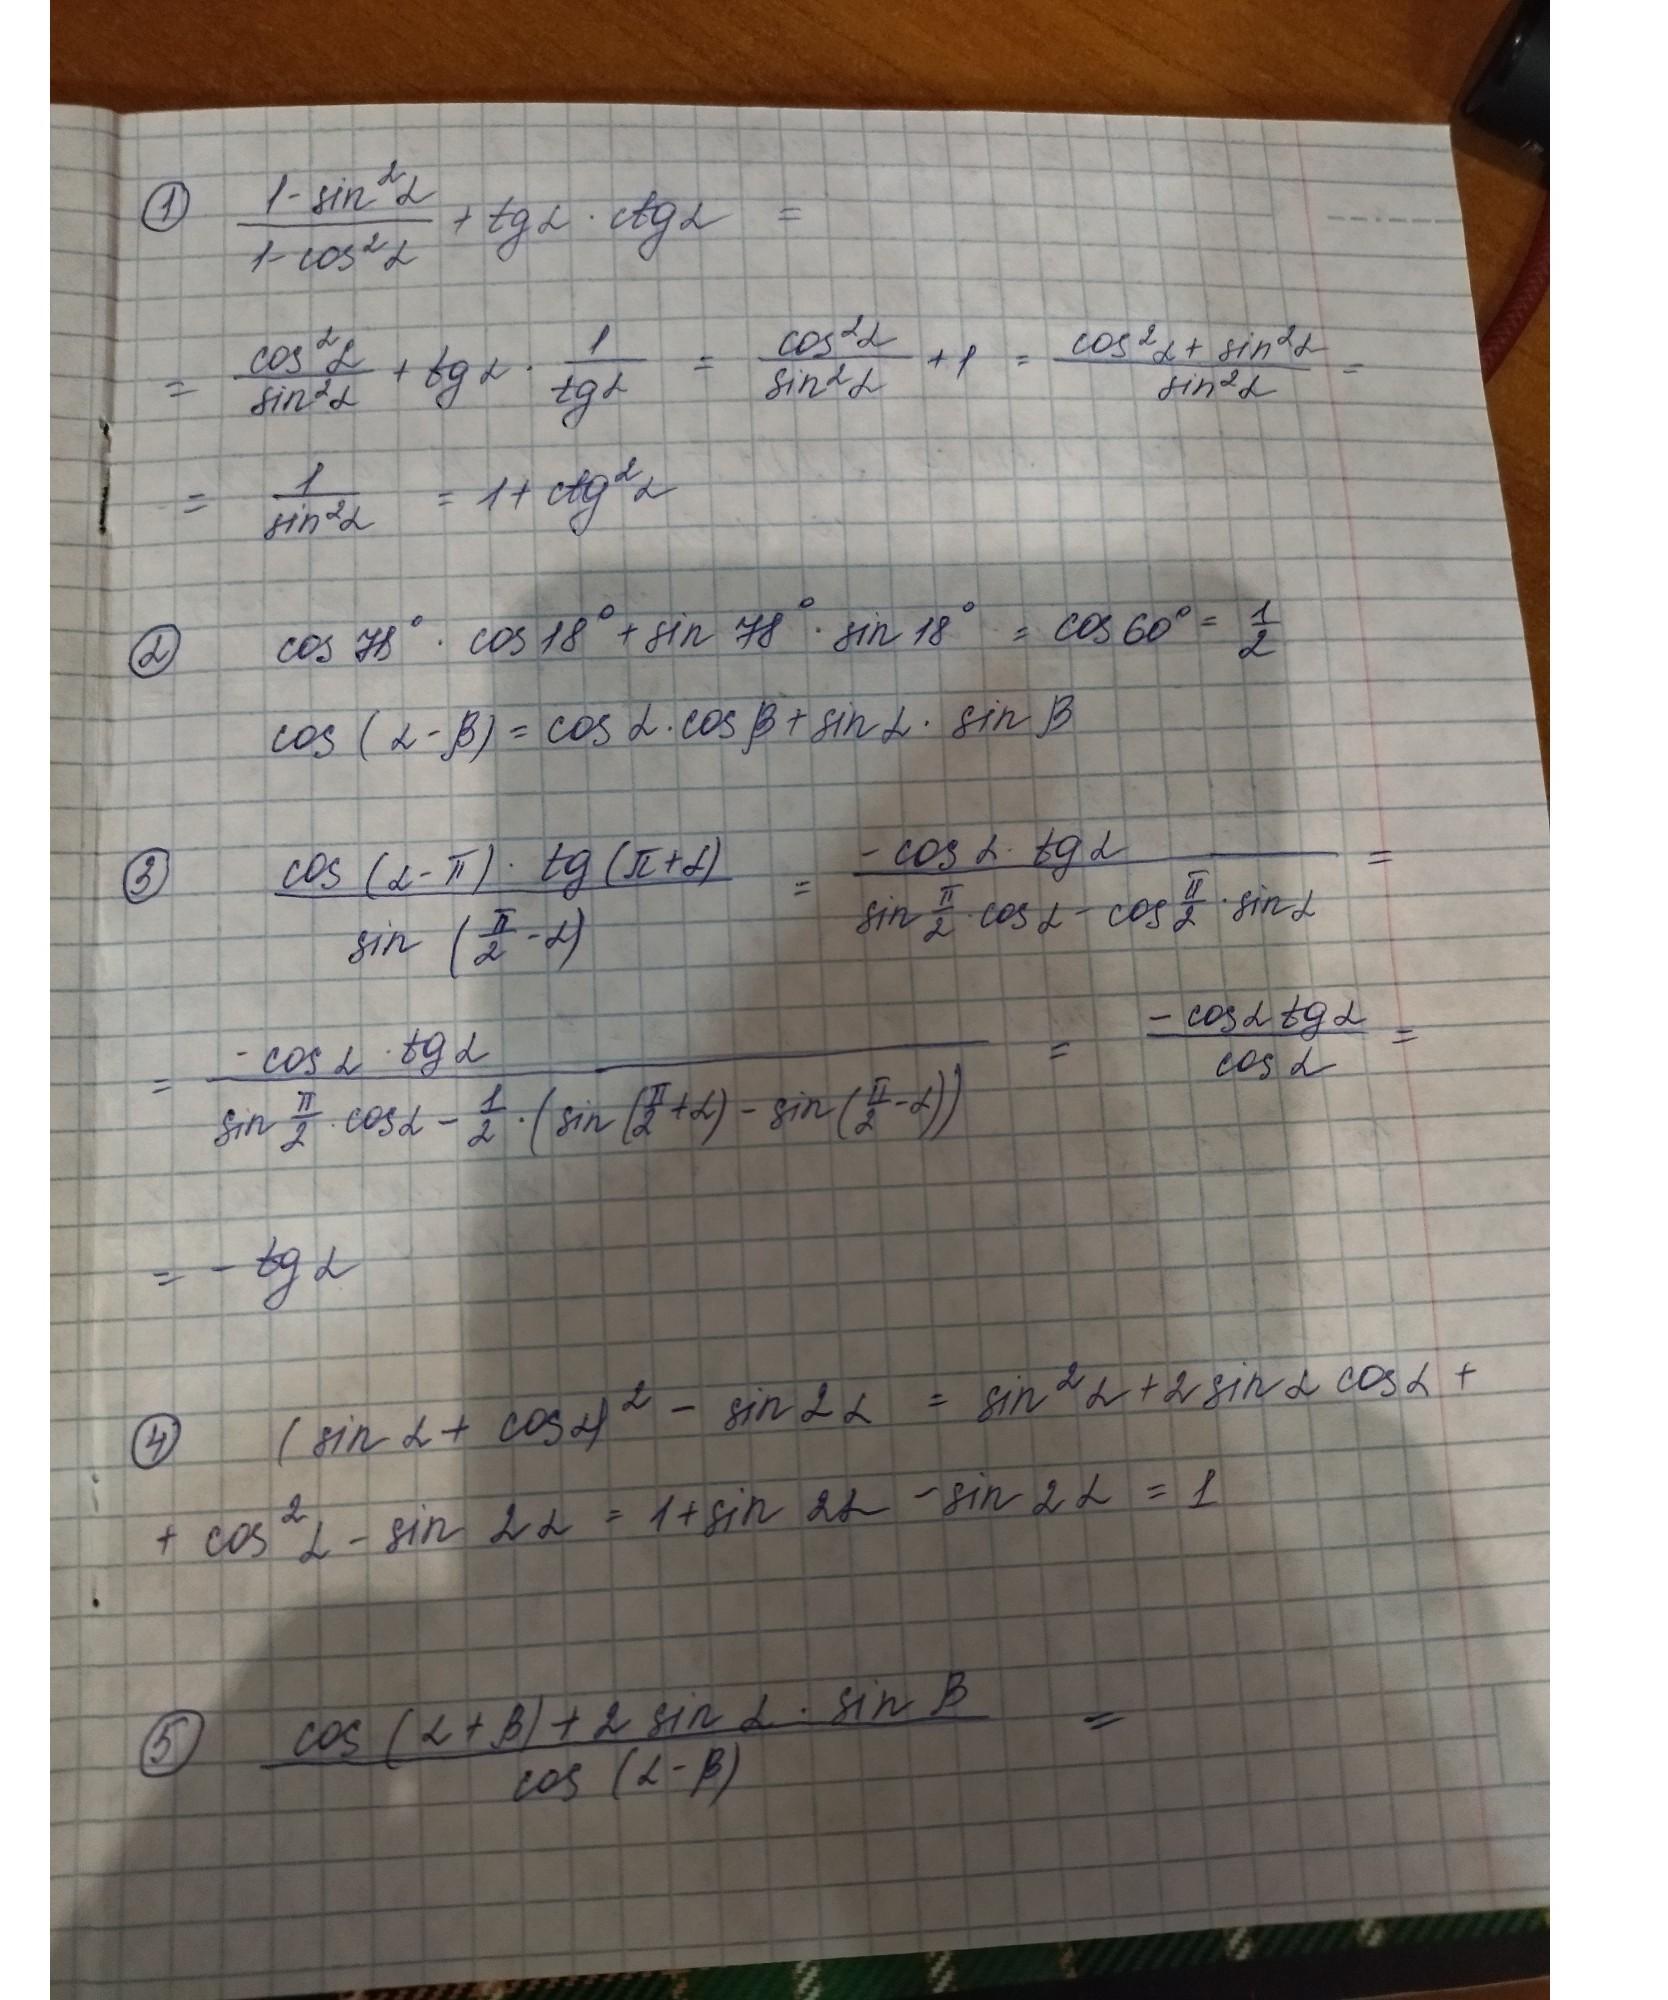 ① (1 - sin²α)/(1 - cos²α) + tg α · ctg α =
= cos²α/sin²α + tg α · 1/tg α = cos²α/sin²α + 1 = (cos²α + sin²α)/sin²α =
= 1/sin²α = 1 + ctg²α
② cos 78° · cos 18° + sin 78° · sin 18° = cos 60° = 1/2
cos (α - β) = cos α · cos β + sin α · sin β
③ (cos (α - π) · tg (π + α))/(sin (π/2 - α)) = (-cos α · tg α)/(sin π/2 · cos α - cos π/2 · sin α) =
= (-cos α · tg α)/(sin π/2 · cos α - 1/2 · (sin (π/2 + α) - sin (π/2 - α))) = (-cos α tg α)/(cos α) =
= - tg α
④ (sin α + cos α)² - sin 2α = sin²α + 2 sin α cos α +
+ cos²α - sin 2α = 1 + sin 2α - sin 2α = 1
⑤ (cos (α + β) + 2 sin α · sin β)/(cos (α - β)) =